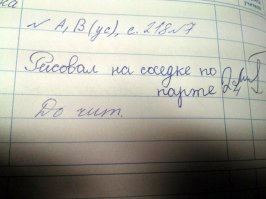 № А, В (ус), с. 218 №7
Рисовал на соседке по
парте
До чит.